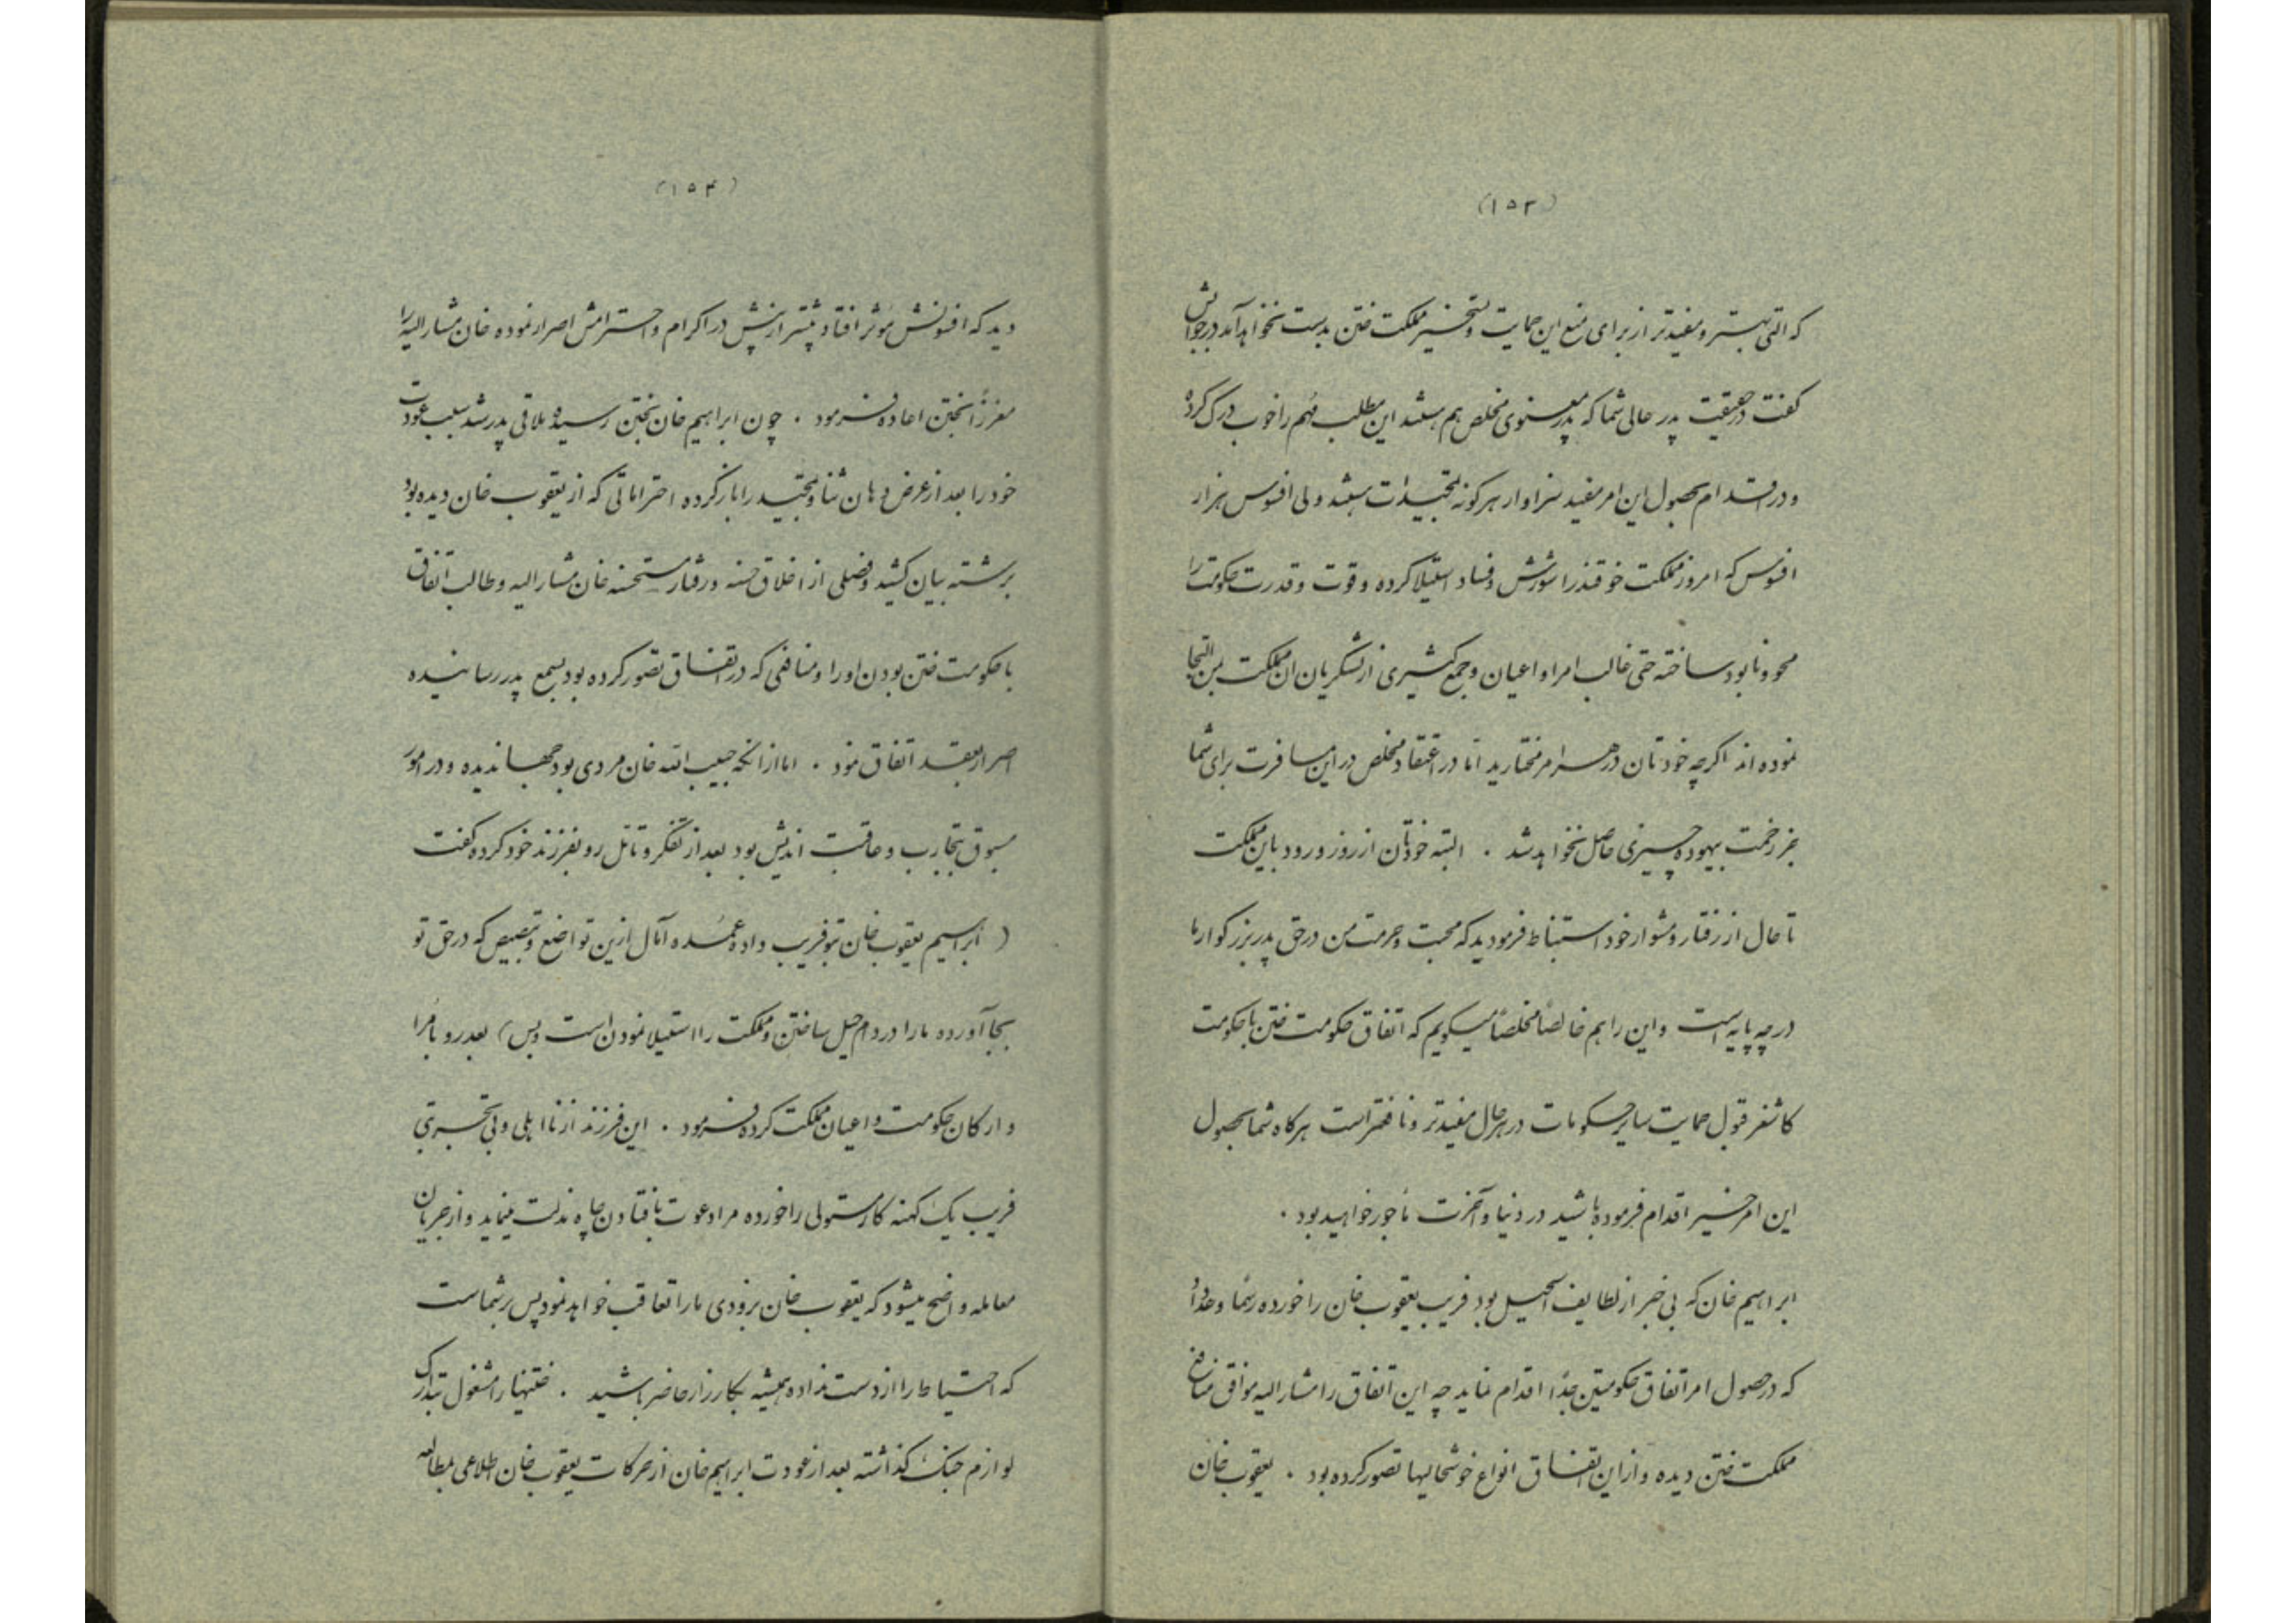 (۱۵۳)
که التی بهتر و مفیدتر از برای منع این حمایت و تسخیر مملکت ختن بدست نخواهد آمد در جوابش
گفت در حقیقت پدر عالی شما که پدر معنوی مخلص هم هستند این مطلب مهم را خوب درک کرده
و در اقدام بحصول این امر مفید سزاوار هر کونه تمجیدات هستند ولی افسوس هزار
افسوس که امروز مملکت خوقند را شورش و فساد استیلا کرده و قوت و قدرت حکومت را
محو و نابود ساخته حتی غالب امرا و اعیان و جمع کثیری از لشکریان ان مملکت بمن التجا
نموده اند اکرچه خودتان در هر امر مختارید اما در اعتقاد مخلص در این مسافرت برای شما
جز زحمت بیهوده چیزی حاصل نخواهد شد . البته خودتان از روز ورود باین مملکت
تا حال از رفتار و مشوار خود استنباط فرمودید که محبت و حرمت من در حق پدر بزرکوار ما
در چه پایه است و این را هم خالصاً مخلصاً میکویم که اتفاق حکومت ختن با حکومت
کاشغر قبول حمایت سایر حکومات در هر حال مفیدتر و نافعتر است هرکاه شما بحصول
این امر خیر اقدام فرموده باشید در دنیا و آخرت مأجور خواهید بود .
ابراهیم خان که بی خبر از لطایف الحیل بود فریب یعقوب خان را خورده رسما وعداً
که در حصول امر اتفاق حکومتین جدّاً اقدام نماید چه این اتفاق را مشار الیه موافق منافع
مملکت ختن دیده و از این اتفاق انواع خوشحالیها تصور کرده بود . یعقوب خان
(۱۵۴)
دید که افسونش مؤثر افتاد پیشتر از پیش در اکرام و احترامش اصرار نموده خان مشار الیه را
معززاً بختن اعاده فرمود . چون ابراهیم خان بختن رسیده ملاقی پدر شد سبب عودت
خود را بعد از عرض دهان ثنا و تمجید را باز کرده احتراماتی که از یعقوب خان دیده بود
برشته بیان کشید و فصلی از اخلاق حسنه و رفتار مستحسنه خان مشار الیه و طالب اتفاق
با حکومت ختن بودن او را و منافعی که در اتفاق تصور کرده بود بسمع پدر رسانیده
اصرار بعقد اتفاق نمود . اما از آنکه حبیب الله خان مردی بود جهاندیده و در امور
مسبوق بتجارب و عاقبت اندیش بود بعد از تفکر و تأمل رو بفرزند خود کرده کفت
( ابراهیم یعقوب خان بتو فریب داده عمده آمال ازین تواضع و تبصبص که در حق تو
بجا آورده ما را در دام حیل ساختن و مملکت را استیلا نمودن است و بس) بعد رو بامرا
و ارکان حکومت و اعیان مملکت کرده فرمود . این فرزند از نااهلی و بی تجربتی
فریب یک کهنه کار مستولی را خورده مرا دعوت بافتادن چاه مذلت مینماید و از جریان
معامله واضح میشود که یعقوب خان بزودی ما را تعاقب خواهد نمود پس بر شماست
که احتیاط را از دست نداده همیشه بکارزار حاضر باشید . ختنیها را مشغول تدارک
لوازم جنک کذاشته بعد از عودت ابراهیم خان از حرکات یعقوب خان اطلاعی بمطالعه